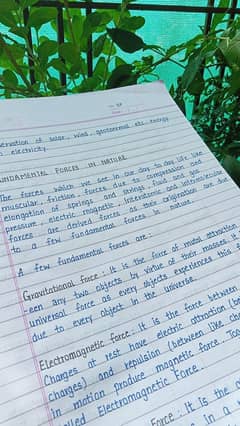 servation of solar, wind, geothermal etc. energy
electricity.
UNDAMENTAL FORCES IN NATURE
The forces which we see in our day to day life like
muscular, friction, forces due to compression and
elongation of springs and strings, fluid and gas
pressure, electric, magnetic, interatomic and intermolecular
forces are derived forces as their origination are due
to a few fundamental forces in nature.
A few fundamental forces are:
Gravitational Force: It is the force of mutual attraction
-een any two objects by virtue of their masses. It
universal force as every objects experiences this
due to every object in the universe.
Electromagnetic Force: It is the force between
Charges at rest have electric attraction (bet
charges) and repulsion (between like char
in motion produce magnetic force. Toge
lled Electromagnetic Force.
Force: It is the
in a